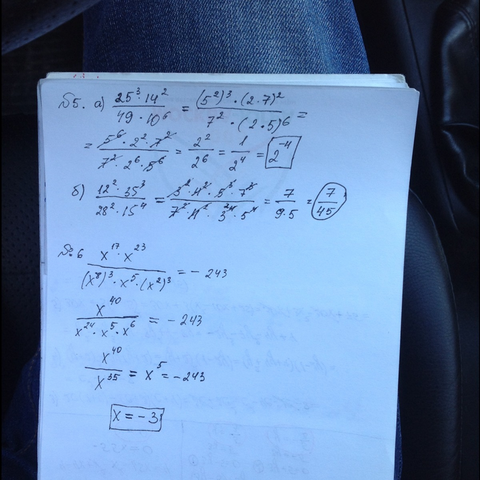 №5. а) 25³·14² / 49·10⁶ = (5²)³·(2·7)² / 7²·(2·5)⁶ =
= 5⁶·2²·7² / 7²·2⁶·5⁶ = 2² / 2⁶ = 1 / 2⁴ = 2⁻⁴
б) 12²·35³ / 28²·15⁴ = 3²·4²·5³·7³ / 7²·4²·3⁴·5⁴ = 7 / 9·5 = 7 / 45
№6 x¹⁷·x²³ / (x⁸)³·x⁵·(x²)³ = -243
x⁴⁰ / x²⁴·x⁵·x⁶ = -243
x⁴⁰ / x³⁵ = x⁵ = -243
x = -3